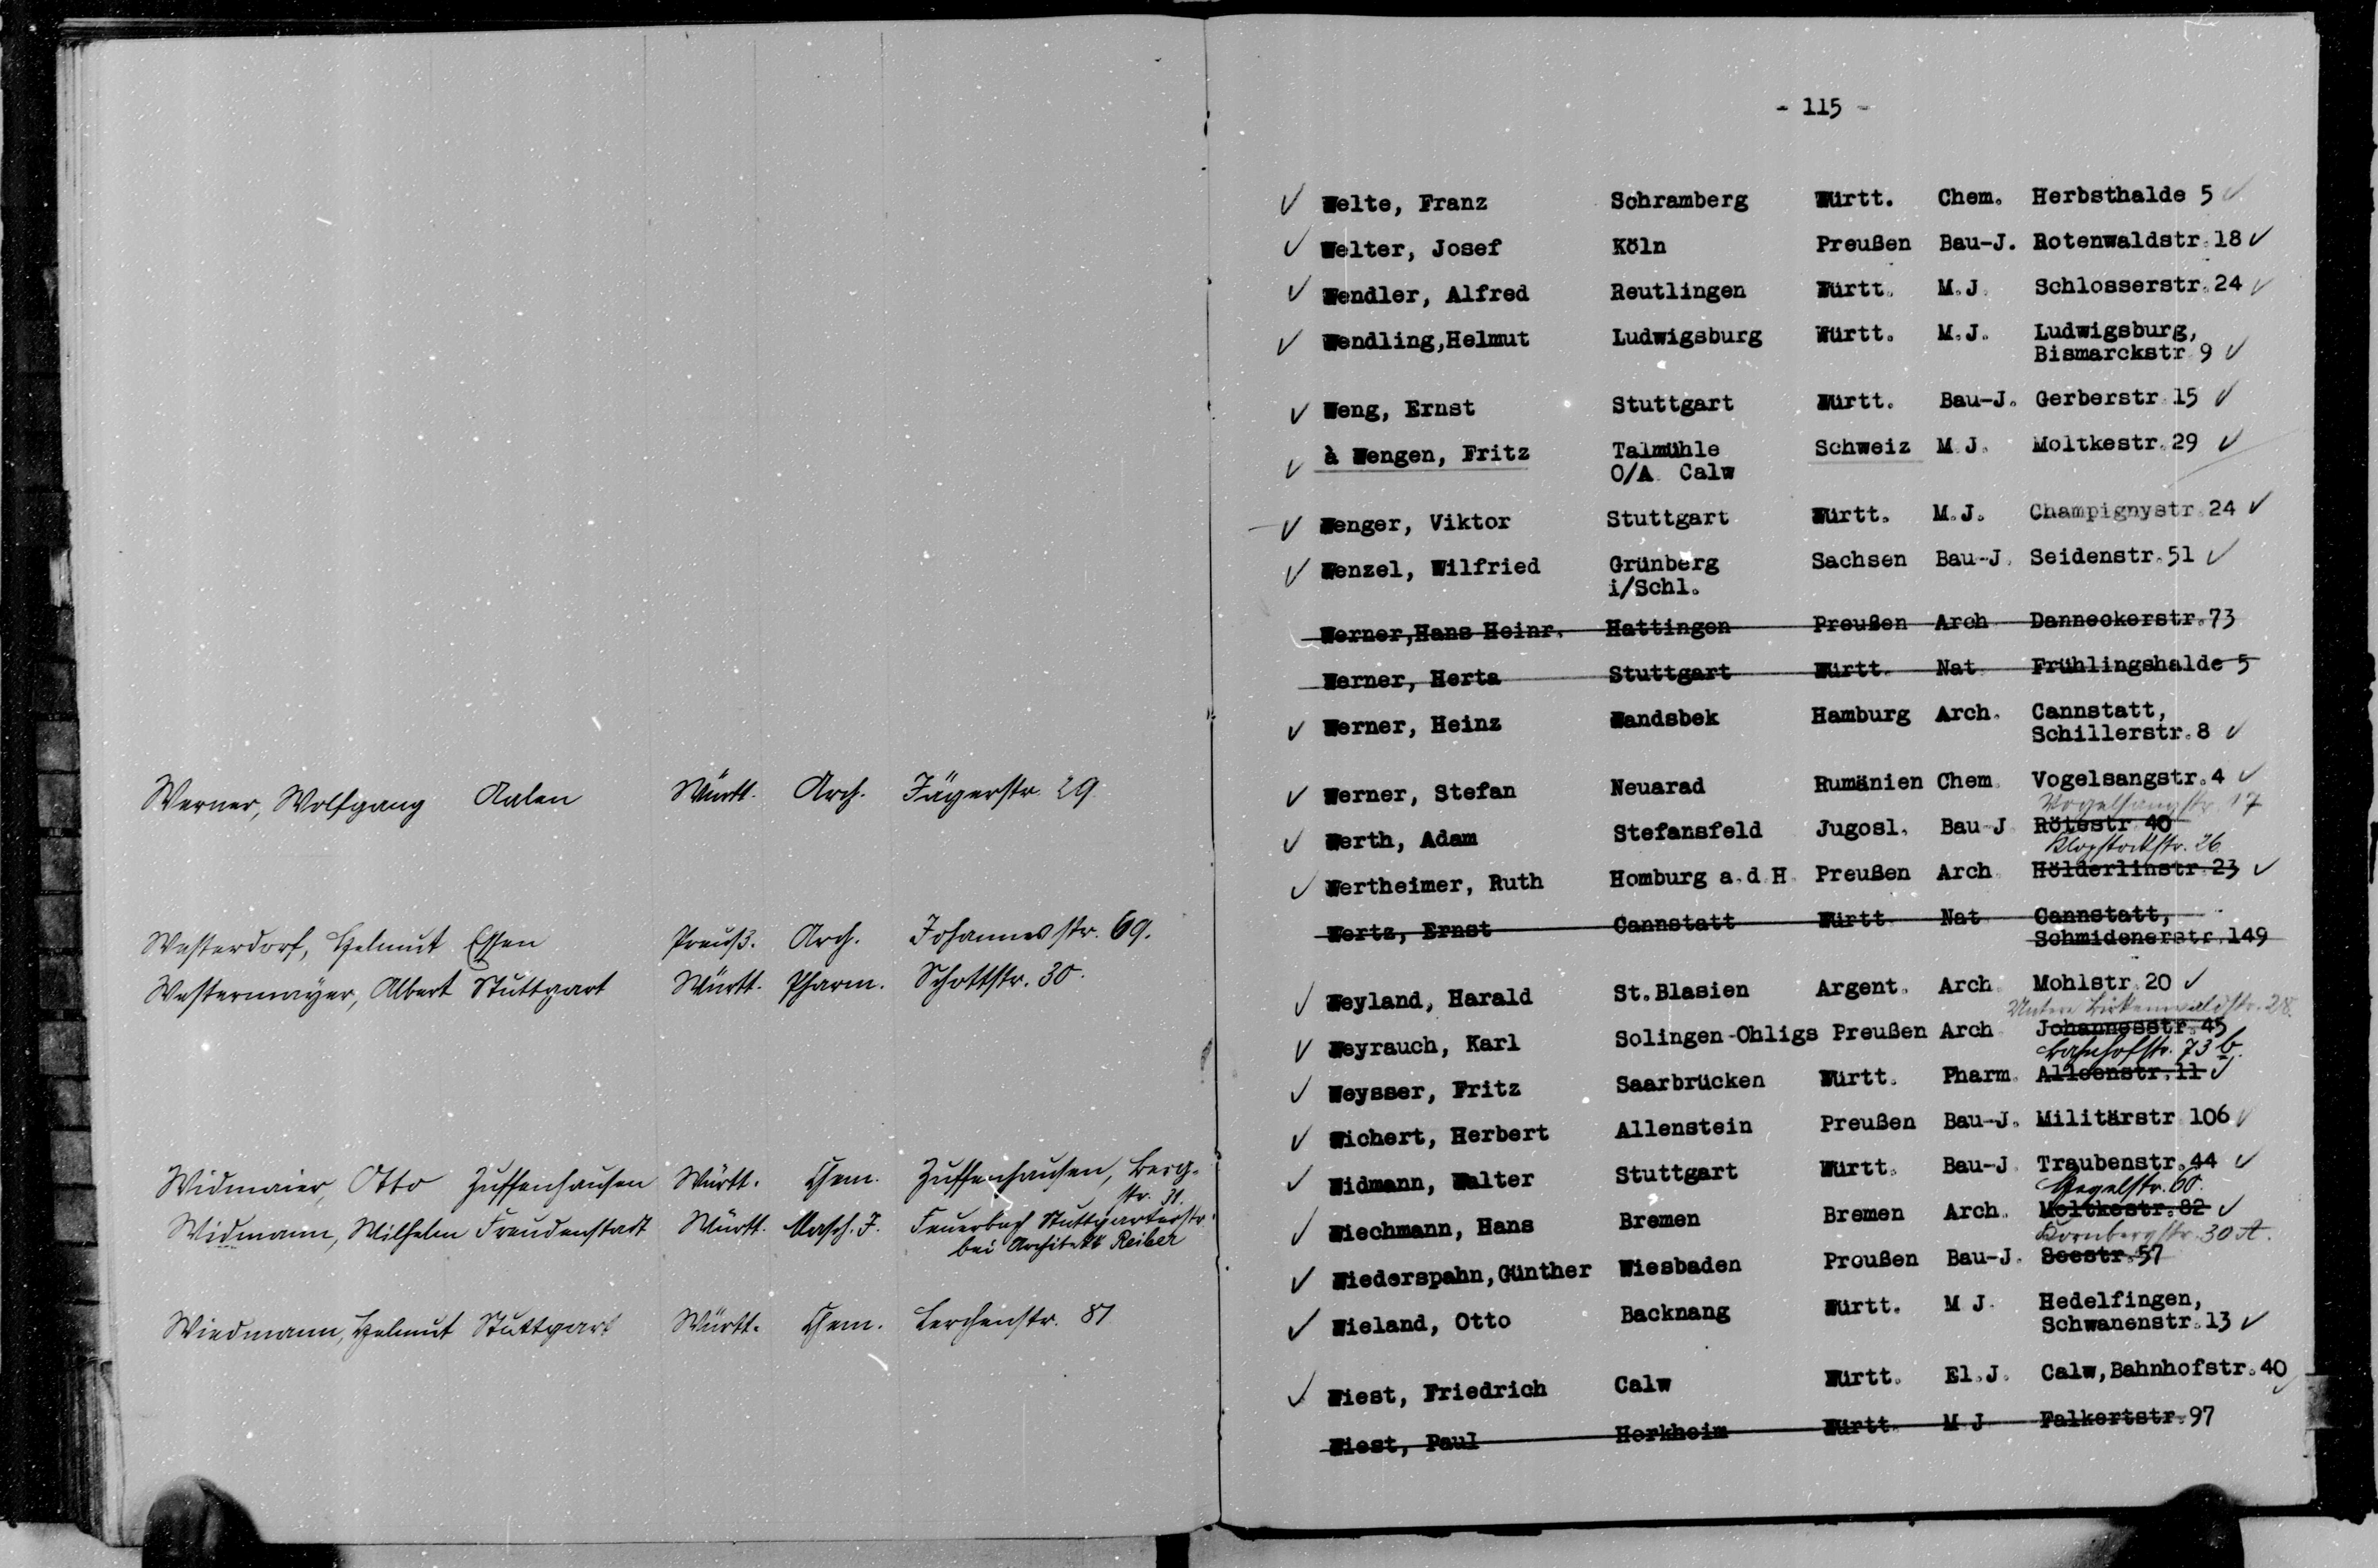 Werner, Wolfgang Aalen Württ. Arch. Jägerstr. 29
Westerdorf, Helmut Essen Preuß. Arch. Johannesstr. 69.
Westermayer, Albert Stuttgart Württ. Pharm. Schottstr. 30.
Widmaier, Otto Zuffenhausen Württ. Chem. Zuffenhausen, Berg-
str. 31.
Widmann, Wilhelm Freudenstadt Württ. Masch. J. Feuerbach Stuttgarterstr.
bei Architekt Reiber
Wiedmann, Helmut Stuttgart Württ. Chem. Lerchenstr. 81
- 115 -
Welte, Franz Schramberg Württ. Chem. Herbsthalde 5
Welter, Josef Köln Preußen Bau-J. Rotenwaldstr.18
Wendler, Alfred Reutlingen Württ. M.J. Schlosserstr.24
Wendling,Helmut Ludwigsburg Württ. M.J. Ludwigsburg,
Bismarckstr 9
Weng, Ernst Stuttgart Württ. Bau-J. Gerberstr.15
à Wengen, Fritz Talmühle Schweiz M.J. Moltkestr.29
O/A. Calw
Wenger, Viktor Stuttgart Württ. M.J. Champignystr.24
Wenzel, Wilfried Grünberg Sachsen Bau-J. Seidenstr.51
i/Schl.
Werner,Hans Heinr. Hattingen Preußen Arch Danneckerstr.73
Werner, Herta Stuttgart Württ. Nat Frühlingshalde 5
Werner, Heinz Wandsbek Hamburg Arch. Cannstatt,
Schillerstr.8
Werner, Stefan Neuarad Rumänien Chem. Vogelsangstr.4
Vogelsangstr. 17
Werth, Adam Stefansfeld Jugosl. Bau-J Rötestr 40
Klopstockstr. 26
Wertheimer, Ruth Homburg a.d.H. Preußen Arch. Hölderlinstr.23
Wertz, Ernst Cannstatt Württ. Nat Cannstatt,
Schmidenerstr.149
Weyland, Harald St.Blasien Argent. Arch. Mohlstr.20
Untere Birkenwaldstr. 28.
Weyrauch, Karl Solingen-Ohligs Preußen Arch Johannesstr.45
Bahnhofstr. 73 b.
Weysser, Fritz Saarbrücken Württ. Pharm. Alleenstr.11
Wichert, Herbert Allenstein Preußen Bau-J. Militärstr 106
Widmann, Walter Stuttgart Württ. Bau-J. Traubenstr.44
Hegelstr. 60.
Wiechmann, Hans Bremen Bremen Arch. Moltkestr.82
Hornbergstr. 30 A.
Wiederspahn,Günther Wiesbaden Preußen Bau-J. Seestr.57
Wieland, Otto Backnang Württ. M J. Hedelfingen,
Schwanenstr.13
Wiest, Friedrich Calw Württ. El.J. Calw,Bahnhofstr.40
Wiest, Paul Horkheim Württ. M J Falkertstr.97